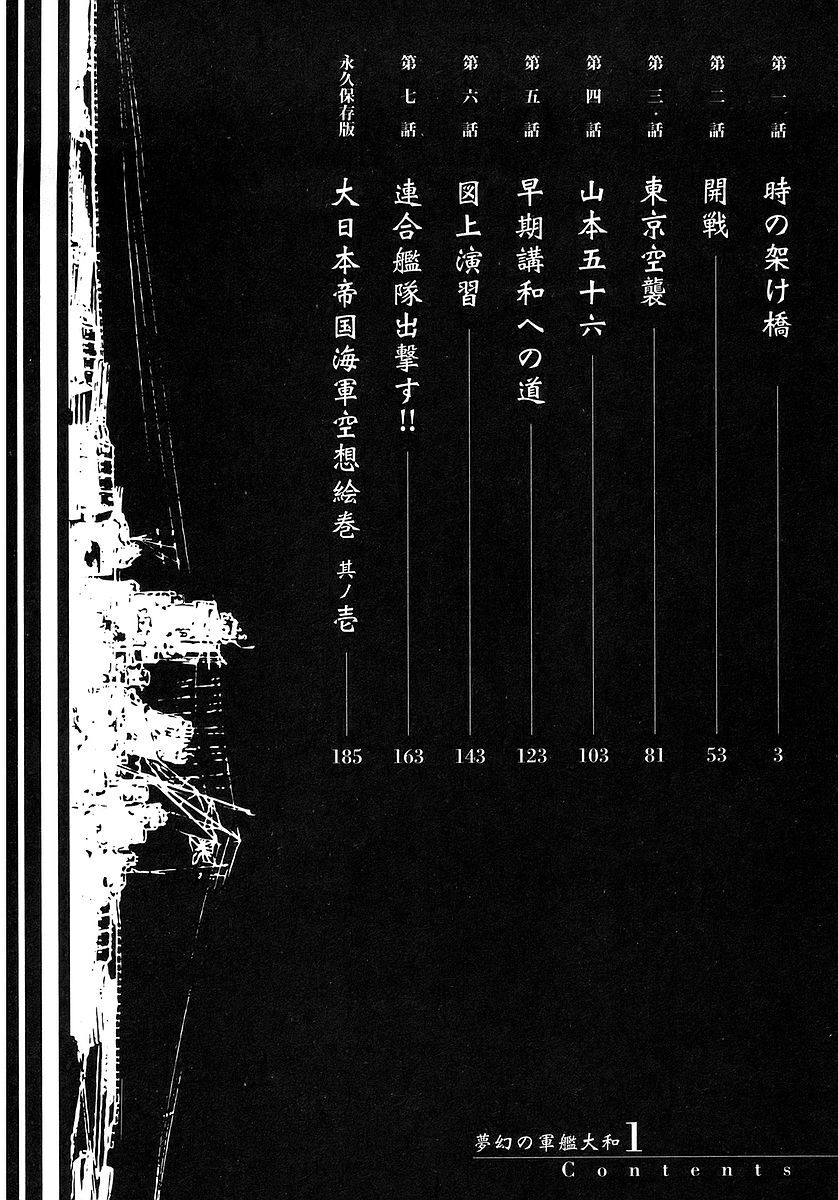 第一話 時の架け橋 3
第二話 開戦 53
第三話 東京空襲 81
第四話 山本五十六 103
第五話 早期講和への道 123
第六話 図上演習 143
第七話 連合艦隊出撃す!! 163
永久保存版 大日本帝国海軍空想絵巻 其ノ壱 185
夢幻の軍艦大和 1
Contents